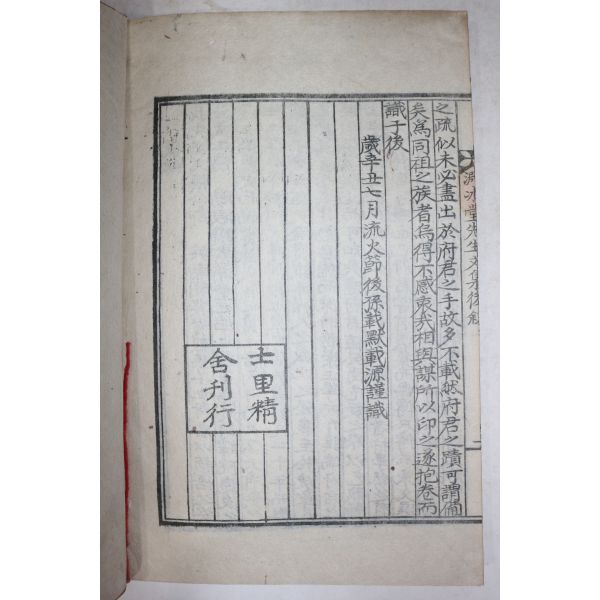 淵冰堂先生文集後敍
二
之疏似未必盡出於府君之手故多不載然府君之蹟可謂備
矣爲同祖之族者烏得不感衷哉相與謀所以印之遂抱卷而
識于後
歲辛丑七月流火節後孫載默載源謹識
士里精
舍刊行